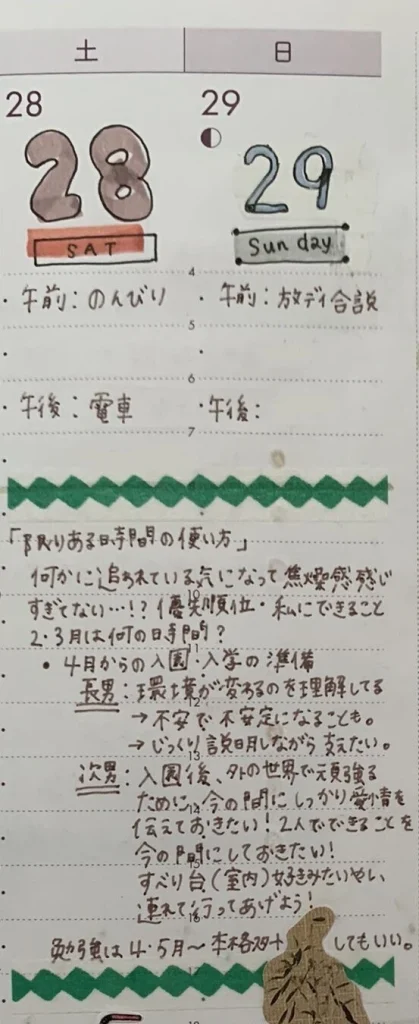 土 日
28 29
28 29
SAT Sunday
4
・午前:のんびり ・午前:放デイ合説
5
6
・午後:電車 ・午後:
7
「限りある時間の使い方」
何かに追われている気になって焦燥感感じ
10
すぎてない…!?優先順位・私にできること
2・3月は何の時間?
11
・4月からの入園・入学の準備
長男:環境が変わるのを理解してる
12
→不安で不安定になることも。
→じっくり説明しながら支えたい。
13
次男:入園後、外の世界で頑強る
ために今の間にしっかり愛情を
14
伝えておきたい!2人でできることを
今の間にしておきたい!
15
すべり台(室内)好きみたいやし、
連れて行ってあげよう!
16
勉強は4・5月〜本格スタートしてもいい。
17